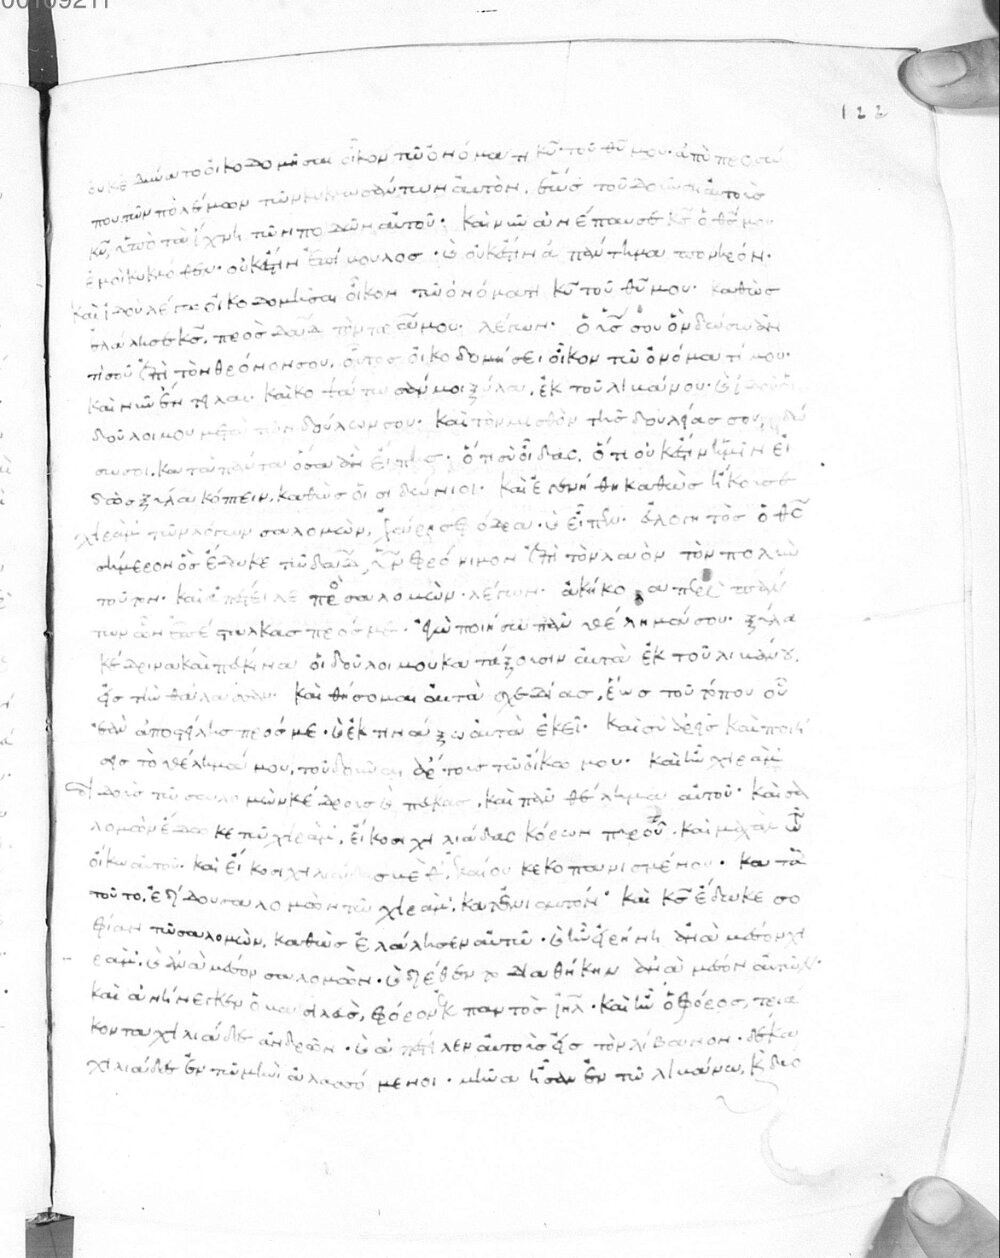 122
οὐκ ἐδύνατο οἰκοδομῆσαι οἶκον τῶ ὀνόματι κυ τοῦ θυ μου· ἀπὸ προσώ
που τῶν πολέμων τῶν κυκλωσάντων αὐτὸν, ἕως τοῦ δοῦναι αὐτοὺς
κν, ὑπὸ τὰ ἴχνη τῶν ποδῶν αὐτοῦ· καὶ νῦν ἀνέπαυσε κς ὁ θς μου
ἐμοὶ κυκλόθεν· οὐκ ἔστιν ἐπίβουλος· καὶ οὐκ ἔστιν ἁπάντημα πονηρόν·
καὶ ἰδοὺ λέγω οἰκοδομῆσαι οἶκον τῶ ὀνόματι κυ τοῦ θυ μου· καθὼς
ἐλάλησε κς πρὸς δαδ τὸν πρα μου λέγων· ὁ υἱός σου ὃν δώσω ἀν
τὶ σοῦ ἐπὶ τὸν θρόνον σου, οὗτος οἰκοδομήσει οἶκον τῶ ὀνόματί μου·
καὶ νῦν ἔντειλαι καὶ κοψάτωσάν μοι ξύλα, ἐκ τοῦ λιβάνου· καὶ ἰδοὺ οἱ
δοῦλοι μου μετὰ τῶν δούλων σου· καὶ τὸν μισθὸν τῆς δουλείας σου, δώ
σω σοι, κατὰ πάντα ὅσα ἂν εἴπης· ὅτι σὺ οἶδας, ὅτι οὐκ ἔστιν ἡμῖν εἰ
δὼς ξύλα κόπτειν, καθὼς οἱ σιδώνιοι· καὶ ἐγενήθη καθὼς ἤκουσε
χιρὰμ τῶν λόγων σαλομὼν, ἐχάρη σφόδρα· καὶ εἶπεν· εὐλογητὸς ὁ θς
σήμερον ὃς ἔδωκε τῶ δαδ, υἱὸν φρόνιμον ἐπὶ τὸν λαὸν τὸν πολὺν
τοῦτον· καὶ ἀπέστειλε πρὸς σαλομὼν λέγων· ἀκήκοα περὶ πάν
των ὧν ἀπέσταλκας πρός με· ἐγὼ ποιήσω πᾶν θέλημά σου· ξύλα
κέδρινα καὶ πεύκινα οἱ δοῦλοι μου κατάξουσιν αὐτὰ ἐκ τοῦ λιβάνου,
εἰς τὴν θάλασσαν· καὶ θήσομαι αὐτὰ σχεδίας, ἕως τοῦ τόπου οὗ
ἐὰν ἀποστείλης πρός με· καὶ ἐκτινάξω αὐτὰ ἐκεῖ· καὶ σὺ ἀρεῖς καὶ ποιή
σεις τὸ θέλημά μου, τοῦ δοῦναι ἄρτους τῶ οἴκω μου· καὶ ἦν χιρὰμ
διδοὺς τῶ σαλομὼν κέδρους καὶ πεύκας, καὶ πᾶν θέλημα αὐτοῦ· καὶ σα
λομὼν ἔδωκε τῶ χιρὰμ, εἴκοσι χιλιάδας κόρων πυροῦ· καὶ μαχὰλ τῶ
οἴκω αὐτοῦ· καὶ εἴκοσι χιλιάδας βὲθ, ἐλαίου κεκοπανισμένου· κατὰ
τοῦτο, ἐδίδου σαλομὼν τῶ χιρὰμ, κατ᾽ ἐνιαυτόν· καὶ κς ἔδωκε σο
φίαν τῶ σαλομὼν, καθὼς ἐλάλησεν αὐτῶ· καὶ ἦν εἰρήνη ἀνὰ μέσον χι
ρὰμ, καὶ ἀνὰ μέσον σαλομὼν· καὶ διέθεντο διαθήκην ἀνὰ μέσον αὐτῶν·
καὶ ἀνήνεγκεν ὁ βασιλεὺς, φόρον ἐκ παντὸς ιηλ· καὶ ἦν ὁ φόρος, τριά
κοντα χιλιάδες ἀνδρῶν· καὶ ἀπέστειλεν αὐτοὺς εἰς τὸν λίβανον· δέκα
χιλιάδες ἐν τῶ μηνὶ ἀλλασσόμενοι· μῆνα ἦσαν ἐν τῶ λιβάνω, καὶ δύο